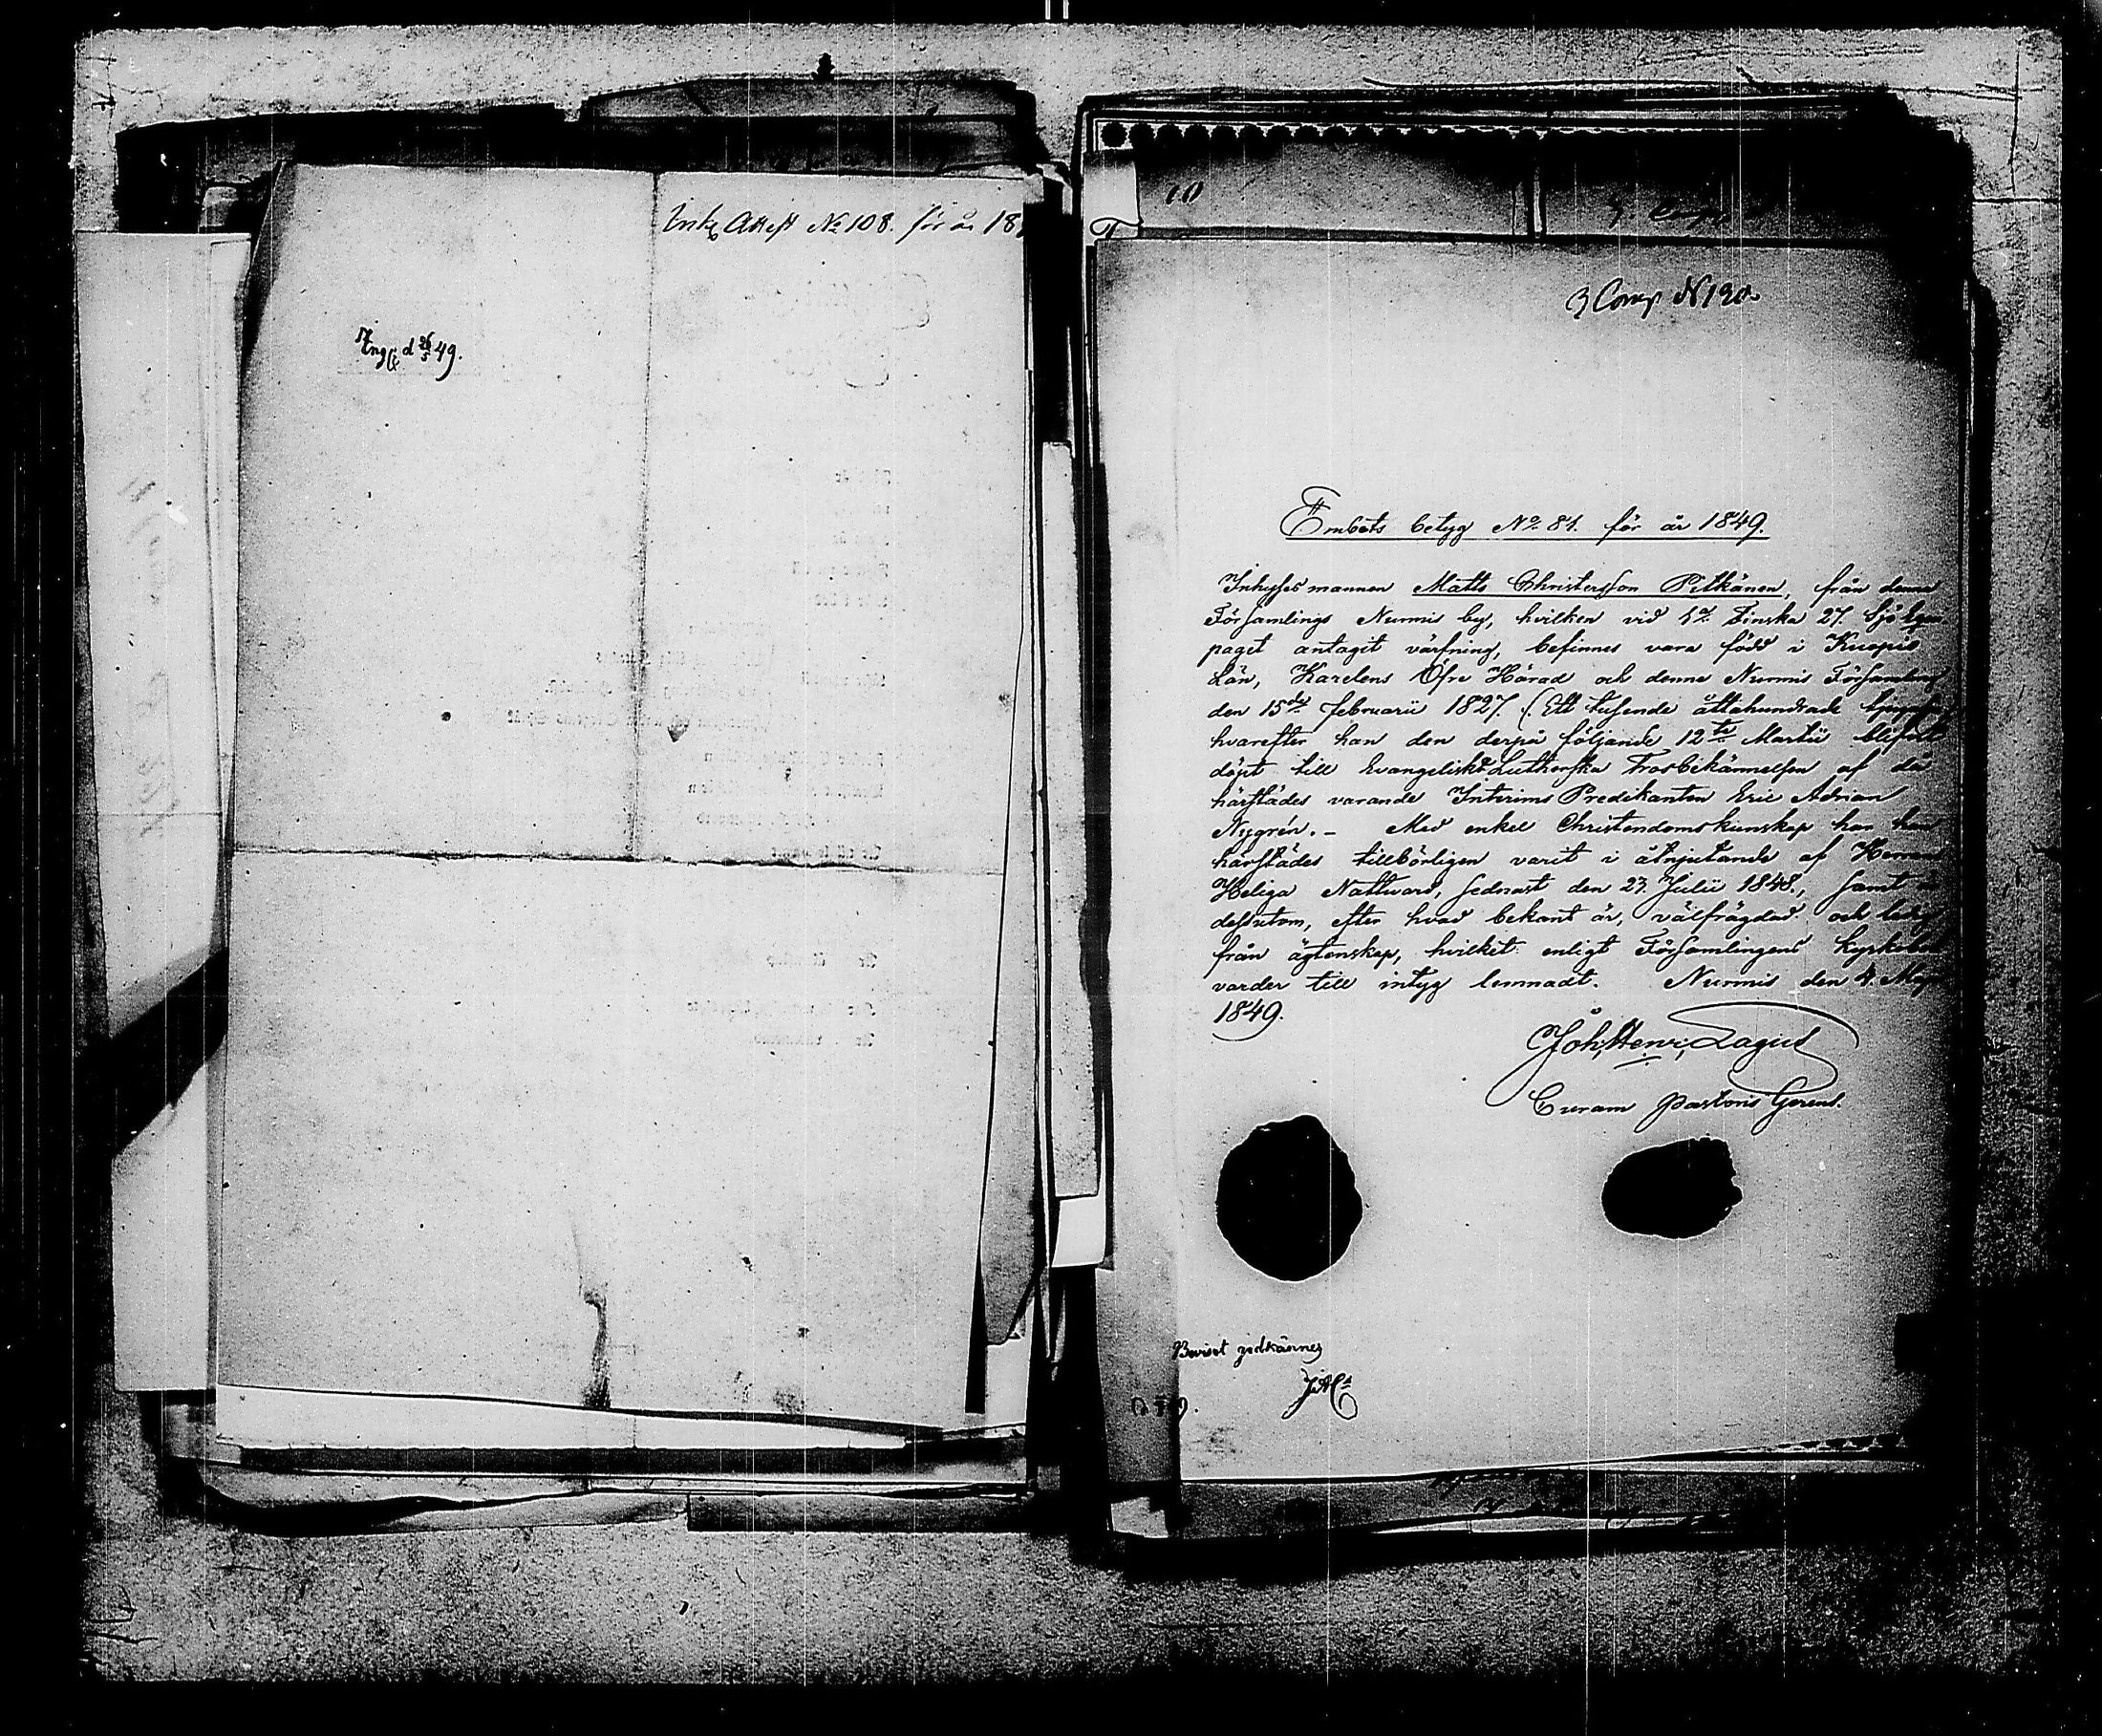 Ink. Attest No 108. för år 18
Ing. d 26/5 49.
10
3 Comp N 120.
Embets betyg No. 81. för år 1849.
Inhyses mannen Matts Christersson Pitkänen, från denna
Församlings Nurmis by, hvilken vid 1a Finska 27. Sjö Eqvi
paget antagit värfning, befinnes vara född i Kuopio
Län, Karelens Öfre Härad och denna Nurmis Församling
den 15de Februarii 1827. (. Ett tusende åttahundrade tjugusju
hvarefter han den derpå följande 12te Martii blifvit
döpt till Evangeliskt Lutherska Trosbekännelsen af då
härstädes varande Interims Predikanten Eric Adrian
Nygrén. – Med enkel Christendomskunskap har han
härstädes tillbörligen varit i åtnjutande af Herrans
Heliga Nattvard, sednast den 23. Julii 1848., samt är
dessutom, efter hvad bekant är, välfrägdad och ledig
från ägtenskap, hvilket enligt Församlingens kyrkobok
varder till intyg lemnadt. Nurmis den 4. Maji
1849.
Joh. Henr. Lagus
Curam Pastoris Gerens.
Beviset godkännes